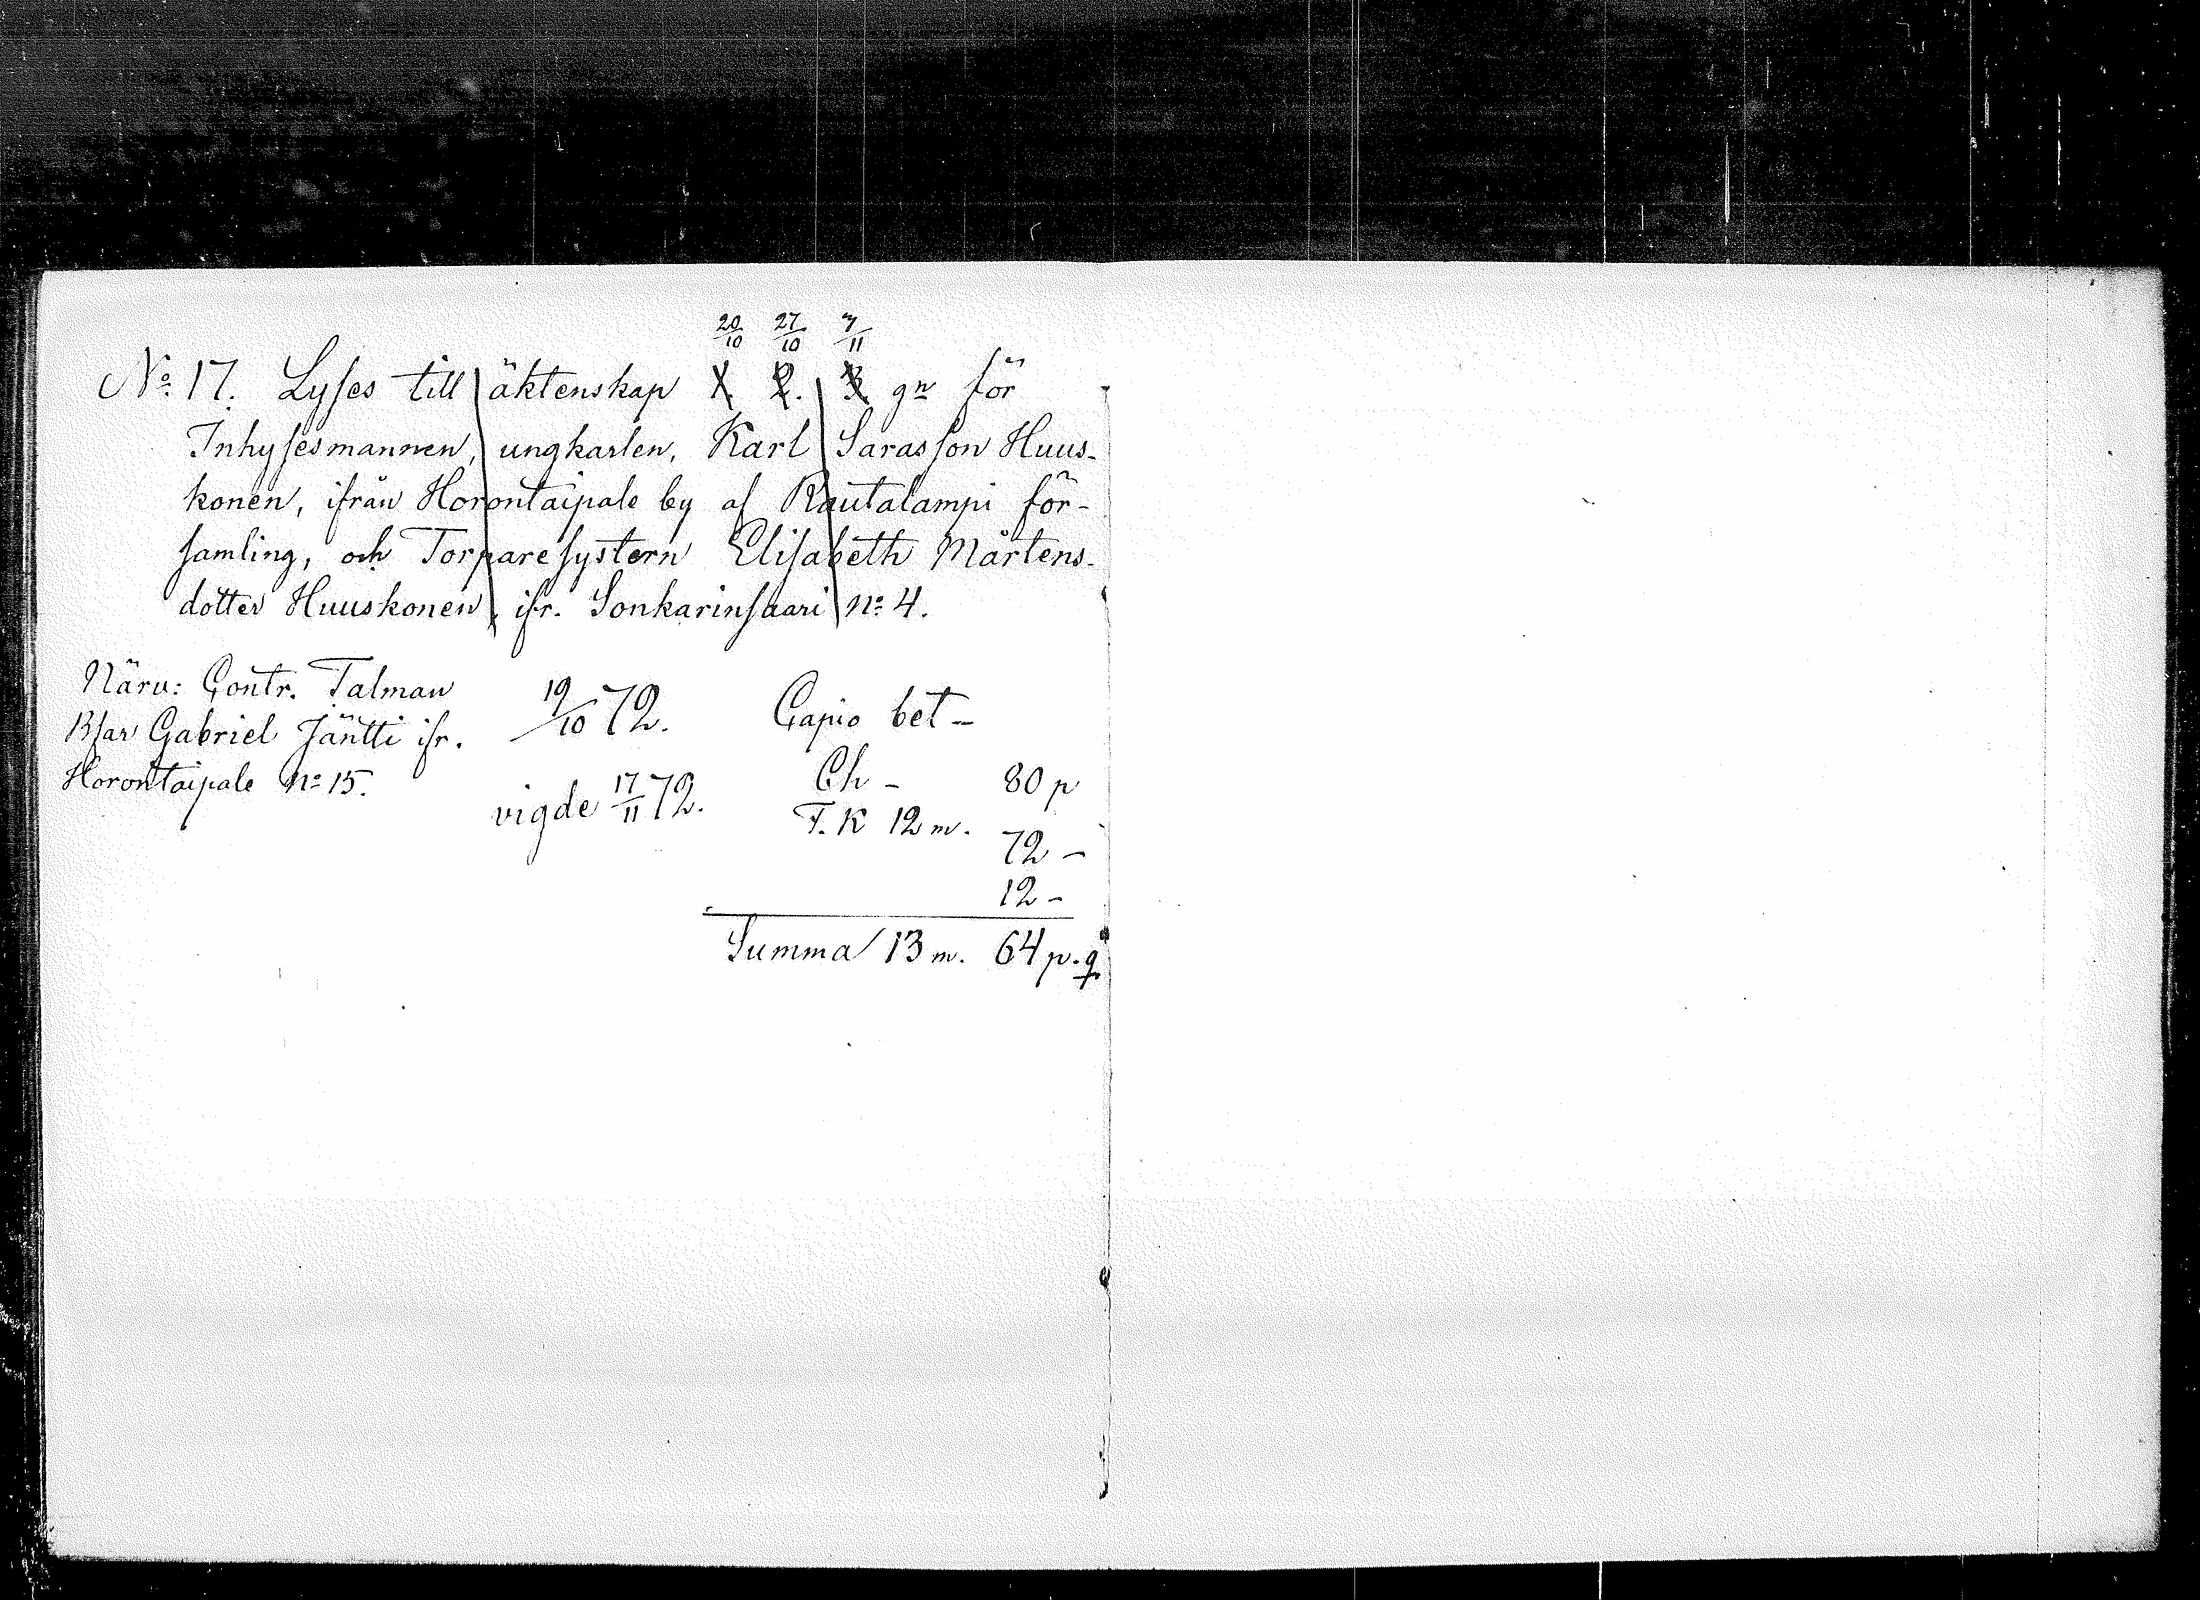 20/10 27/10 3/11
No 17. Lyses till äktenskap 1. 2. 3. gn för
Inhysesmannen, ungkarlen, Karl Sarasson Huus-
konen, ifrån Horontaipale by af Rautalampi för-
samling, och Torparesystern Elisabeth Mårtens-
dotter Huuskonen, ifr. Sonkarinsaari no 4.
Närv: Contr. Talman
Bsar Gabriel Jäntti ifr.
Horontaipale no 15.
19/10 72.
vigde 17/11 72.
Capio bet -
Ch - 80 p
F. K 12 m. 72 -
12 -
Summa 13 m. 64 p. q.